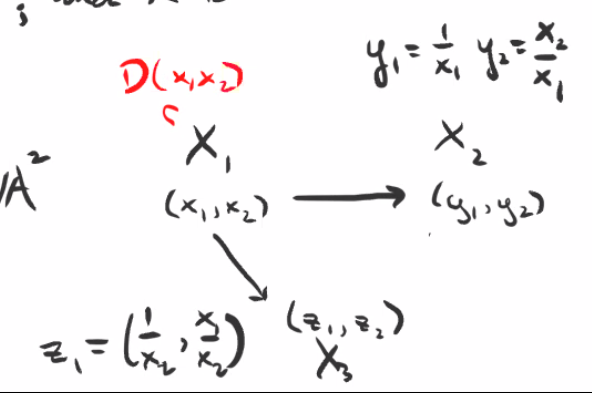 ;
y₁ = 1/x₁ y₂ = x₂/x₁
D(x₁x₂)
X₁ X₂
A²
(x₁, x₂) → (y₁, y₂)
z₁ = (1/x₂, x₁/x₂) (z₁, z₂)
X₃